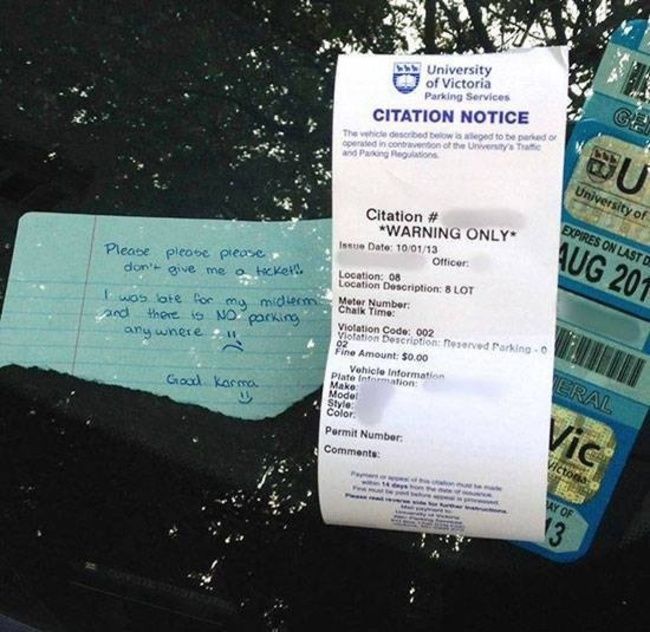 Please please please
don't give me a ticket!!
I was late for my midterm
and there is NO parking
anywhere
Good Karma
University
of Victoria
Parking Services
CITATION NOTICE
The vehicle described below is alleged to be parked or
operated in contravention of the University's Traffic
and Parking Regulations.
Citation #
*WARNING ONLY*
Issue Date: 10/01/13
Officer:
Location: 08
Location Description: 8 LOT
Meter Number:
Chalk Time:
Violation Code: 002
Violation Description: Reserved Parking - 0
02
Fine Amount: $0.00
Vehicle Information
Plate Information:
Make:
Model
Style:
Color:
Permit Number:
Comments:
Payment or appeal of this citation must be made
within 14 days from the date of issuance.
Fine must be paid before appeal is processed.
Please read reverse side for further instructions.
Mail payment to:
University of Victoria
GE
U
University of
EXPIRES ON LAST D
AUG 201
ERAL
Vic
Victoria
AY OF
13